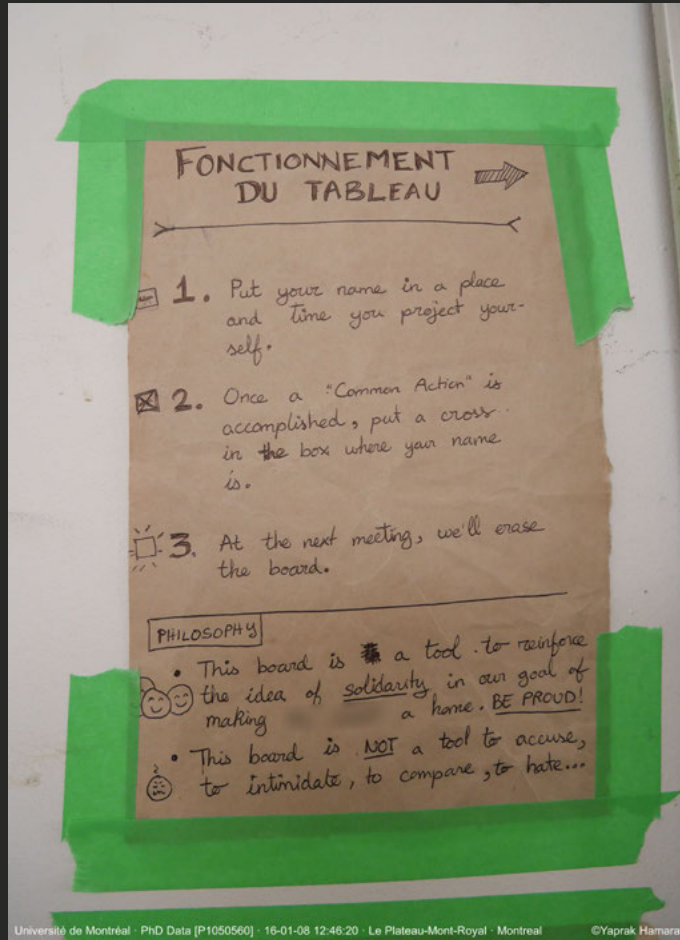 FONCTIONNEMENT
DU TABLEAU
1. Put your name in a place
and time you project your-
self.
2. Once a "Common Action" is
accomplished, put a cross
in the box where your name
is.
3. At the next meeting, we'll erase
the board.
PHILOSOPHY
• This board is a tool to reinforce
the idea of solidarity in our goal of
making a home. BE PROUD!
• This board is NOT a tool to accuse,
to intimidate, to compare, to hate...
Université de Montréal · PhD Data [P1050560] · 16-01-08 12:46:20 · Le Plateau-Mont-Royal · Montreal ©Yaprak Hamara